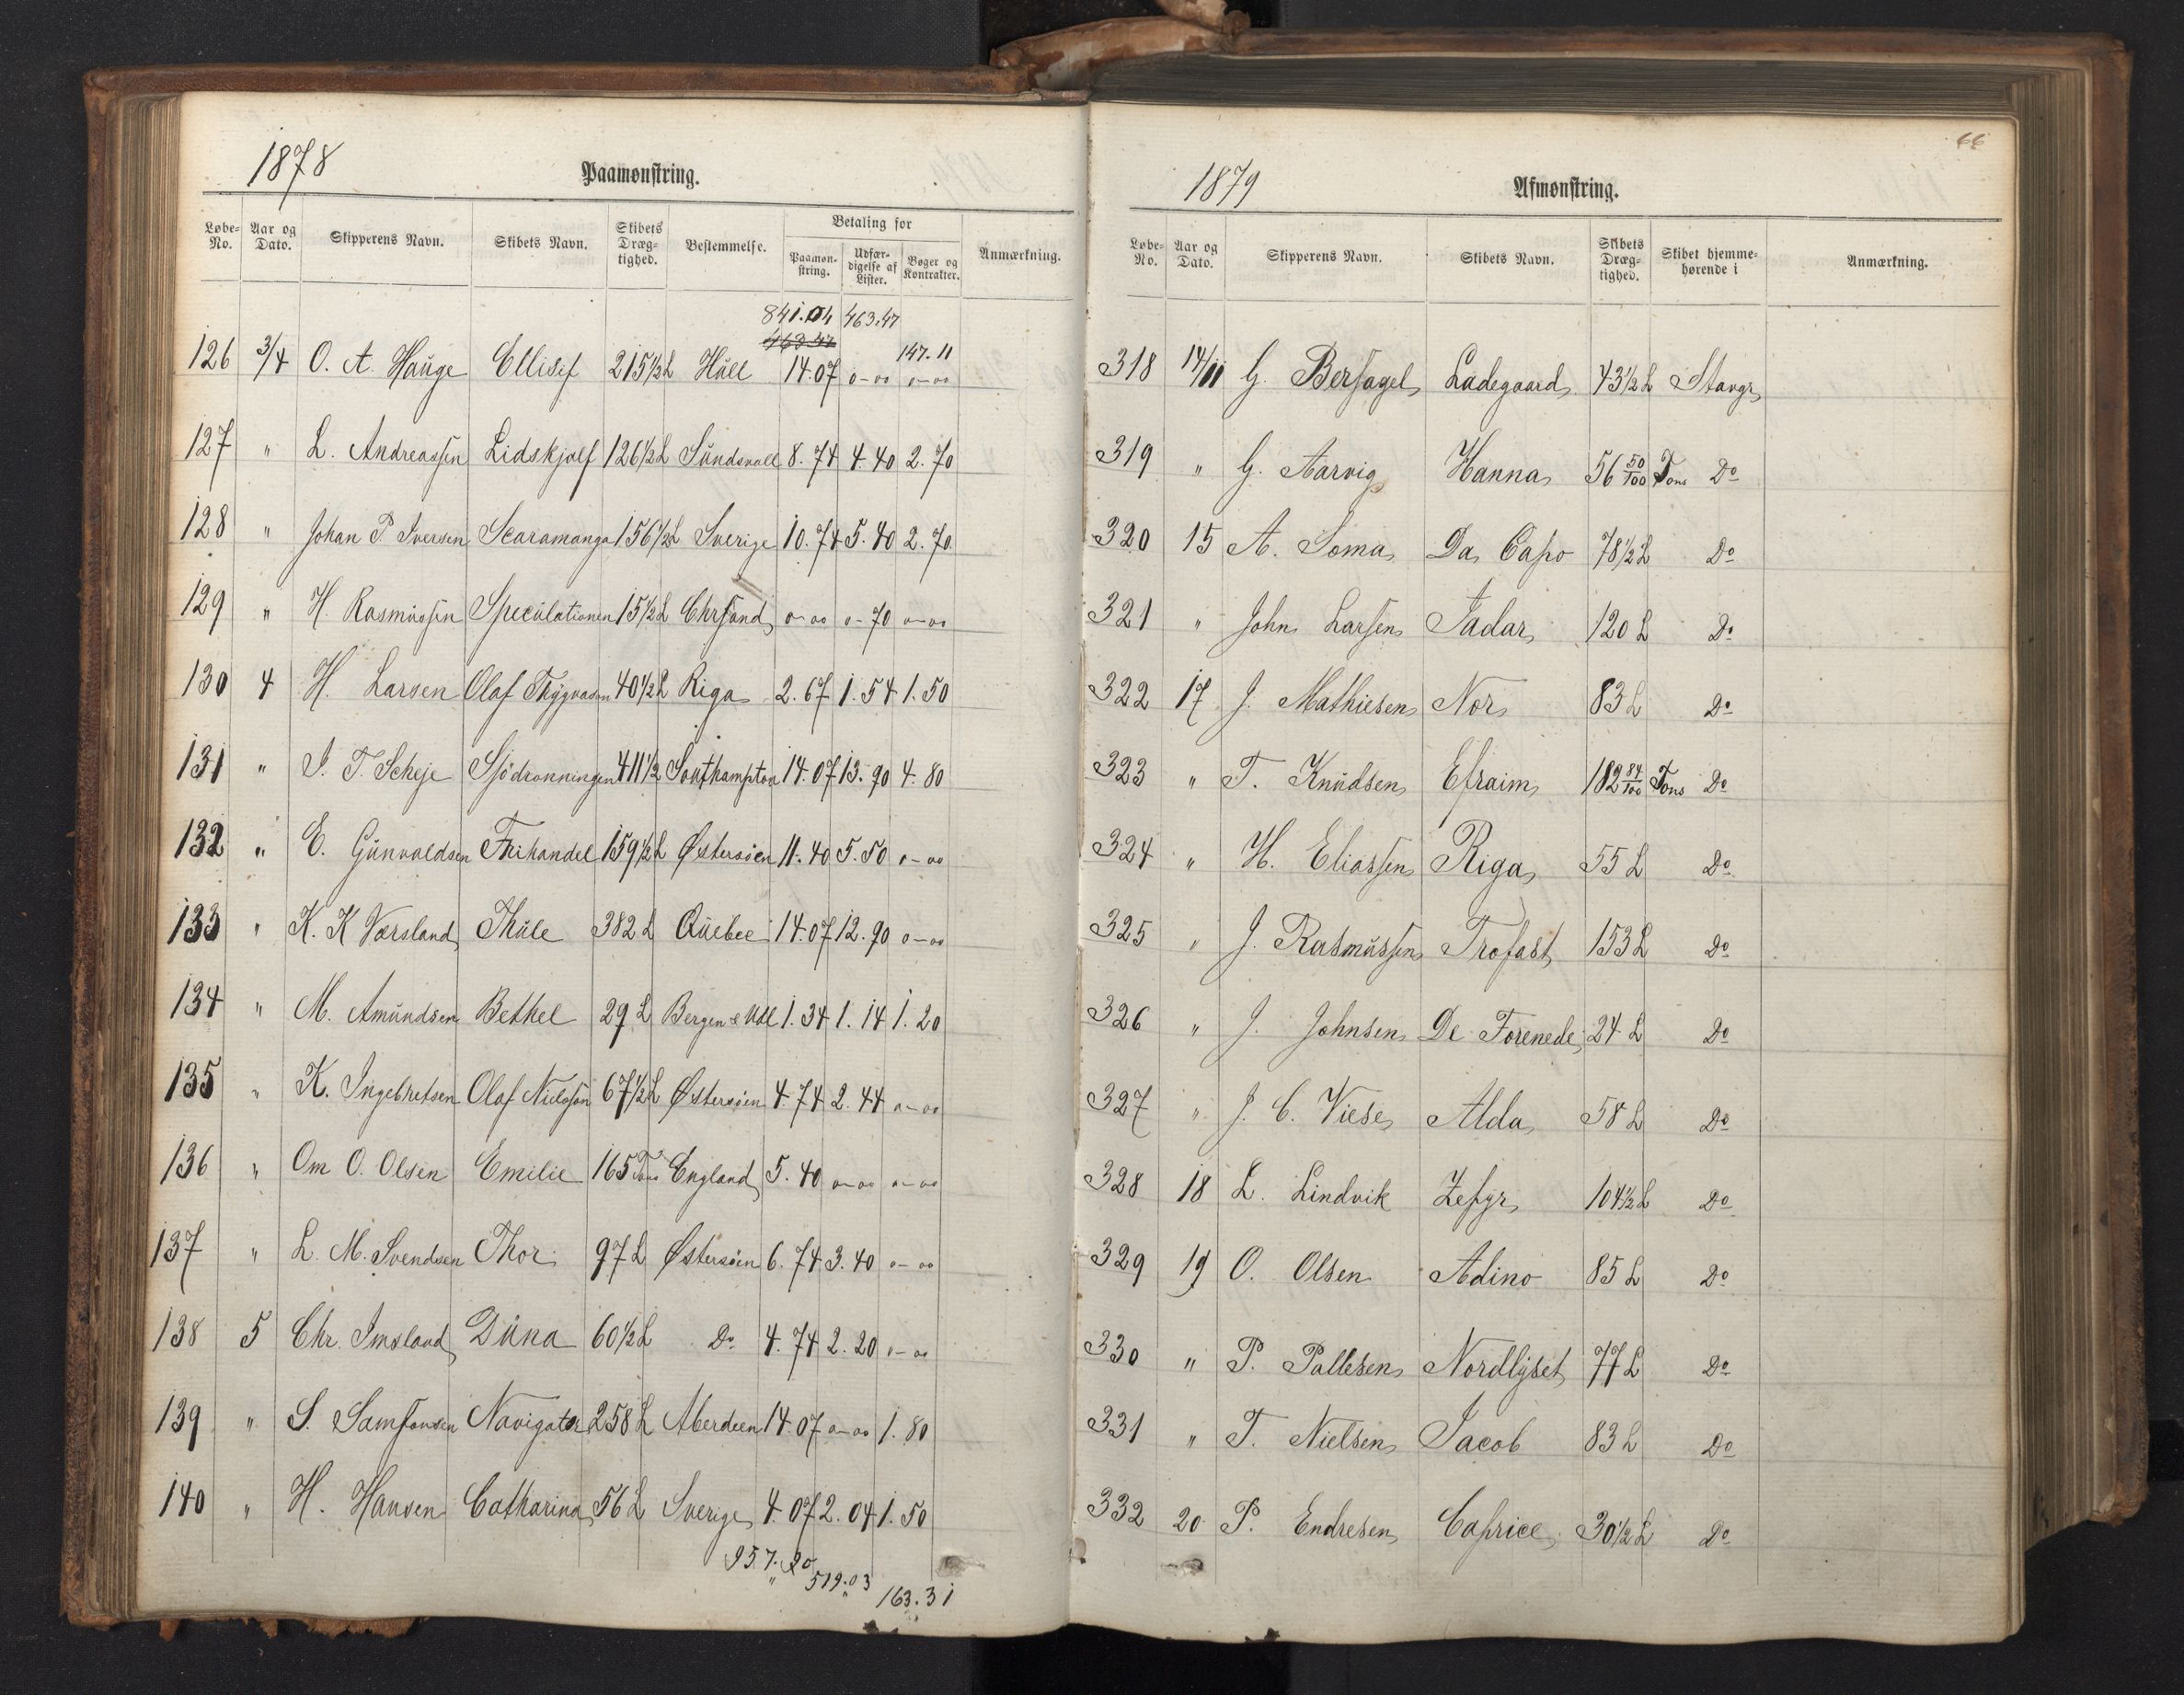 1878
Paamønstring.
Løbe-No. Aar og Dato. Skipperens Navn. Skibets Navn. Skibets Dræg-tighed. Bestemmelse. Betaling for Paamøn-string. Udfær-digelse af Lister. Bøger og Kontrakter. Anmærkning.
841.04 463.47
147.11
126 3/4 O. A. Hauge Ellisif 215 1/2 L Hull 14.07 0-00 0-00
127 " L. Andreassen Lidskjalf 126 1/2 L Sundsvall 8.74 4.40 2.70
128 " Johan P. Iversen Scaramanga 156 1/2 L Sverige 10.74 5.40 2.70
129 " H. Rasmussen Speculationen 15 1/2 L Chrsand 0-00 0-70 0-00
130 4 H. Larsen Olaf Thygvason 40 1/2 L Riga 2.67 1.54 1.50
131 " I. T. Scheje Sjødronningen 411 1/2 Southampton 14.07 13.90 4.80
132 " E. Gunvaldsen Frihandel 159 1/2 L Østersøen 11.40 5.50 0-00
133 " K. K Værsland Thule 382 L Quebec 14.07 12.90 0-00
134 " M. Amundsen Bethel 29 L Bergen & Udl 1.34 1.14 1.20
135 " K. Ingebretsen Olaf Nielssøn 67 1/2 L Østersøen 4.74 2.44 0-00
136 " Om O. Olsen Emilie 165 Tons England 5.40 0-00 0-00
137 " L. M. Svendsen Thor 97 L Østersøen 6.74 3.40 0-00
138 5 Chr. Imsland Düna 60 1/2 L Do 4.74 2.20 0-00
139 " S. Samsonsen Navigator 258 L Aberdeen 14.07 0-00 1.80
140 " H. Hansen Catharina 56 L Sverige 4.07 2.04 1.50
957.20 519.03 163.31
66
1879
Afmønstring.
Løbe-No. Aar og Dato. Skipperens Navn. Skibets Navn. Skibets Dræg-tighed. Skibet hjemme-hørende i Anmærkning.
318 14/11 G. Bersagel Ladegaard 43 1/2 L Stavgr
319 " G. Aarvig Hanna 56 50/100 Tons Do
320 15 A. Soma Da Capo 78 1/2 L Do
321 " John Larsen Jadar 120 L Do
322 17 J. Mathiesen Nor 83 L Do
323 " T. Knudsen Efraim 182 84/100 Tons Do
324 " H. Eliassen Riga 55 L Do
325 " J. Rasmussen Trofast 153 L Do
326 " J. Johnsen De Forenede 24 L Do
327 " J. C. Viese Alda 58 L Do
328 18 L. Lindvik Zefyr 104 1/2 L Do
329 19 O. Olsen Adino 85 L Do
330 " P. Pallesen Nordlyset 77 L Do
331 " T. Nielsen Jacob 83 L Do
332 20 P. Endresen Caprice 30 1/2 L Do